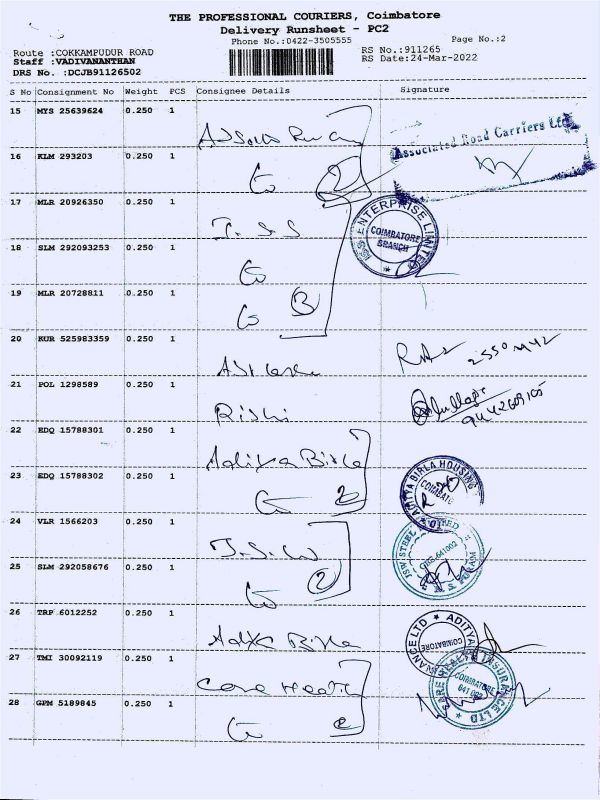 THE PROFESSIONAL COURIERS, Coimbatore
Delivery Runsheet - PC2
Phone No.:0422-3505555
Page No.:2
Route :COKKAMPUDUR ROAD
RS No.:911265
Staff :VADIVANANTHAN
RS Date:24-Mar-2022
DRS No. :DCJB91126502
S No Consignment No Weight PCS Consignee Details Signature
15 MYS 25639624 0.250 1
Associated Road Carriers Ltd
16 KLM 293203 0.250 1
2
17 MLR 20926350 0.250 1
ENTERPRISE LIMITED
COIMBATORE
BRANCH
18 SLM 292093253 0.250 1
19 MLR 20728811 0.250 1
3
20 KUR 525983359 0.250 1
21 POL 1298589 0.250 1
Rishi
22 EDQ 15788301 0.250 1
Aditya Birla
ADITYA BIRLA HOUSING
23 EDQ 15788302 0.250 1
2
24 VLR 1566203 0.250 1
JSW STEEL
641002
25 SLM 292058676 0.250 1
2
26 TRP 6012252 0.250 1
Aditya Birla
ADITYA
COIMBATORE
27 TMI 30092119 0.250 1
Care Health
HEALTH INSURANCE LTD
COIMBATORE
28 GPM 5189845 0.250 1
2